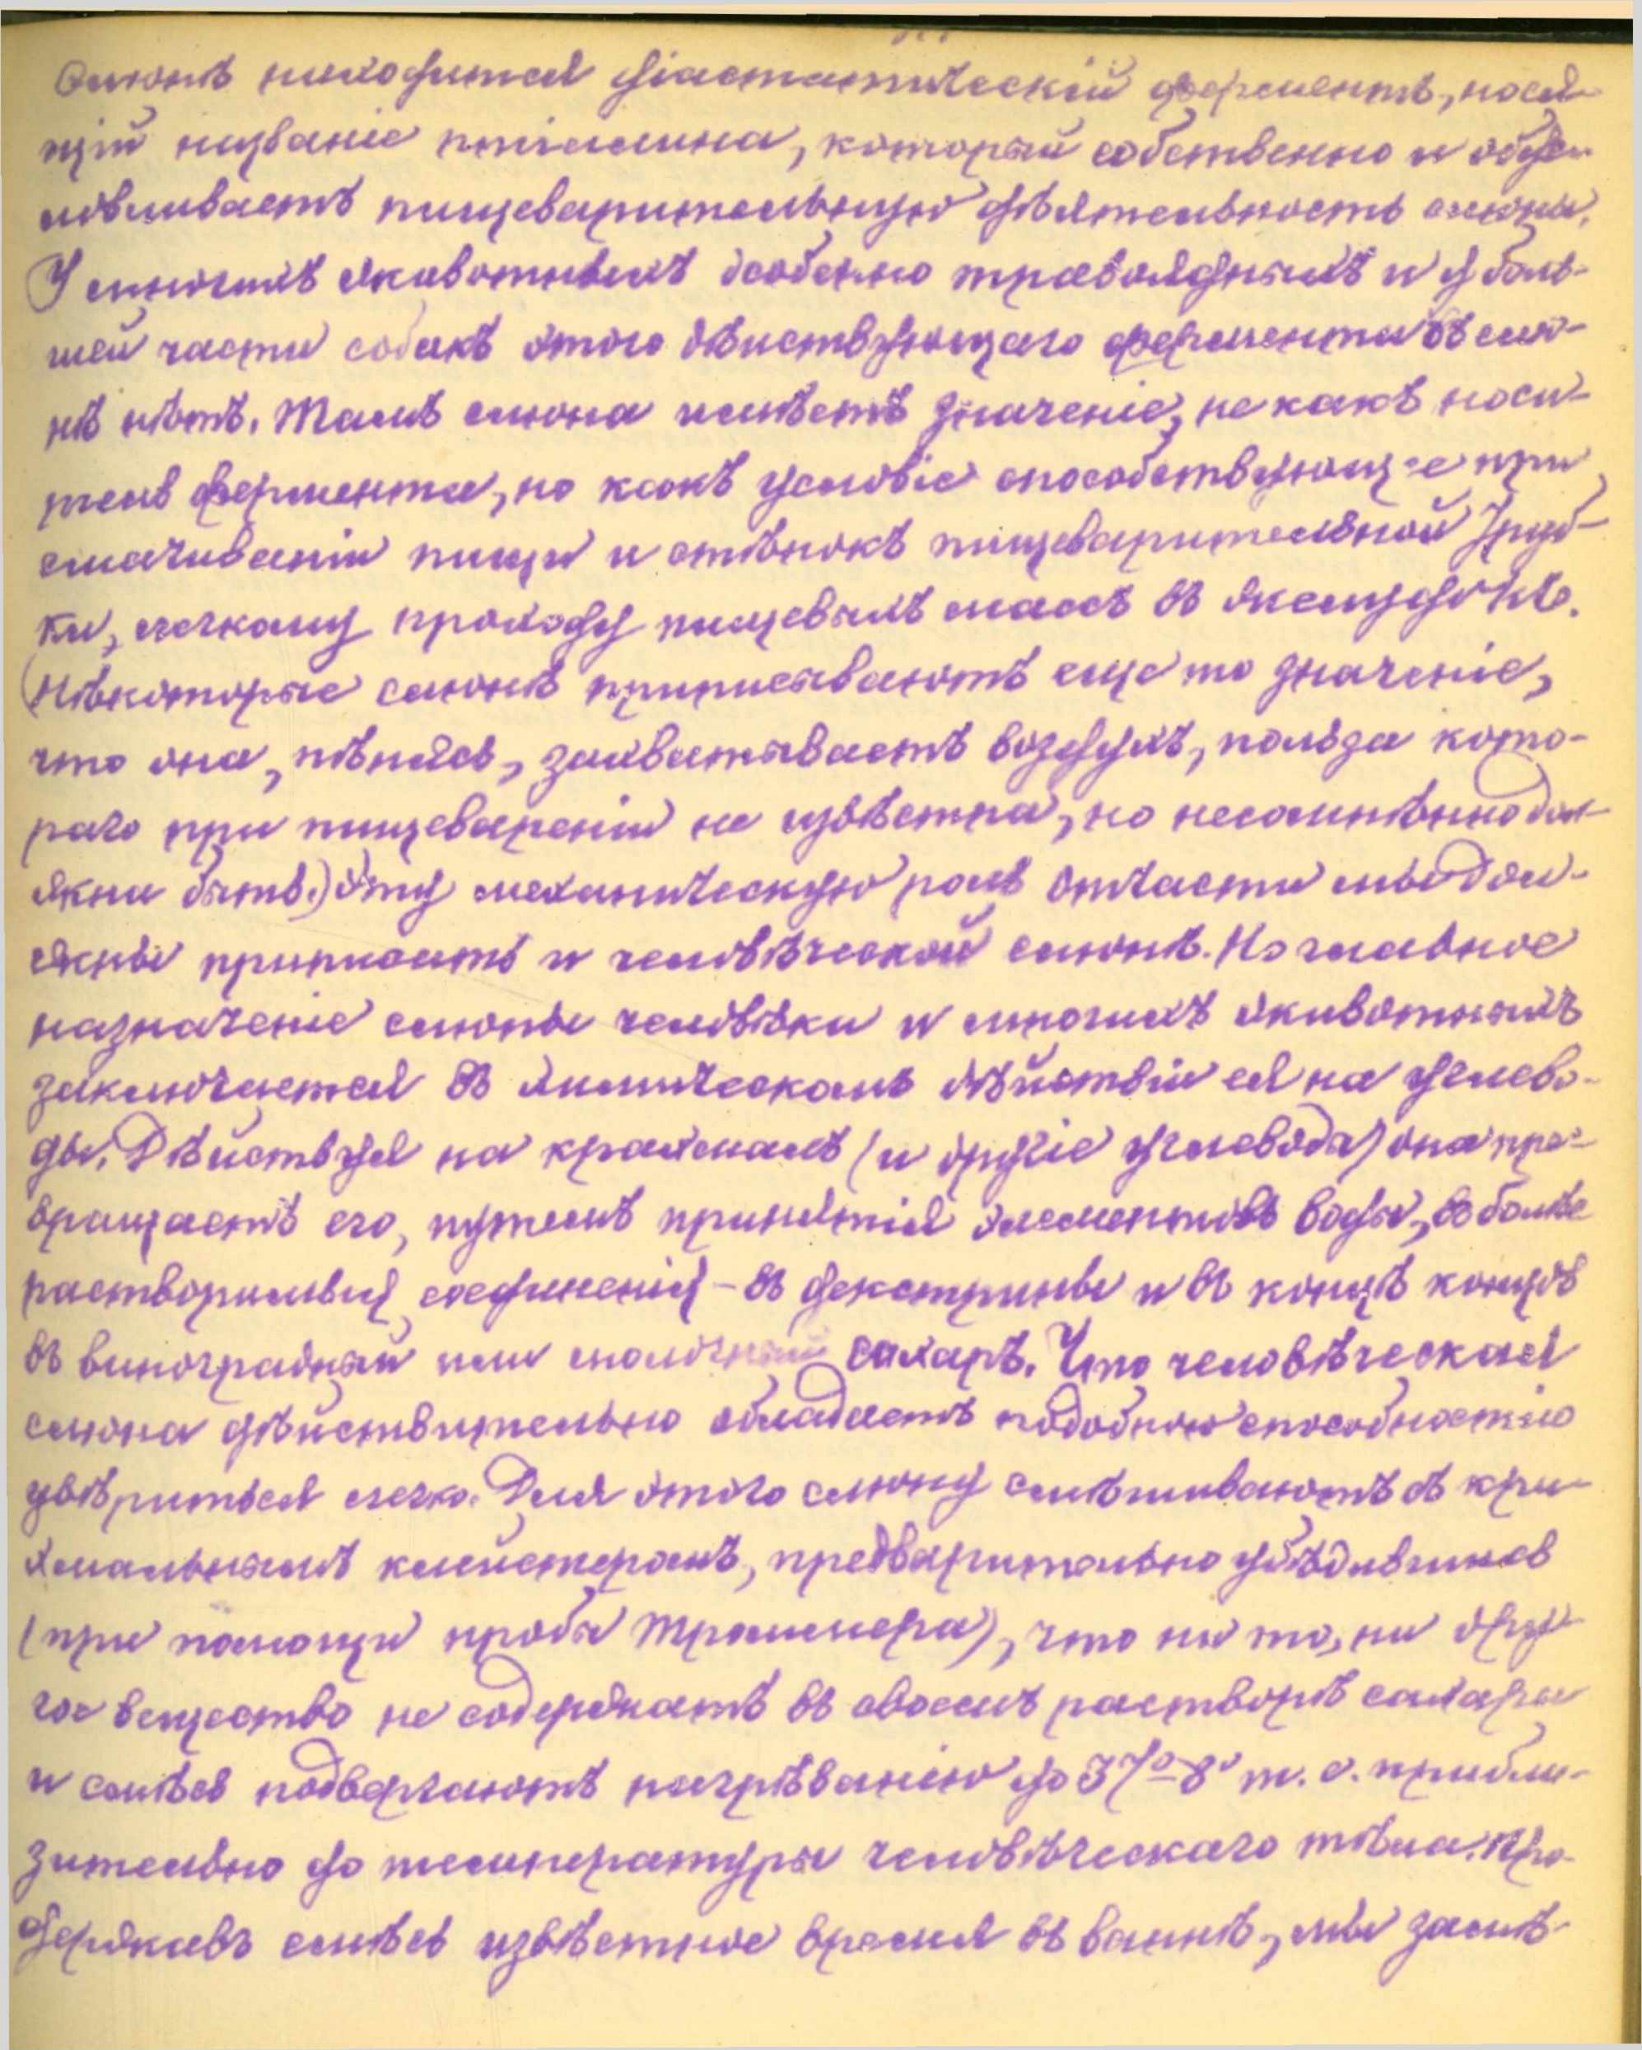 слюнѣ находится діастатическій ферментъ, нося-
щій названіе птіалина, который собственно и обус-
ловливаетъ пищеварительную дѣятельность слюны.
У многихъ животныхъ особенно травоядныхъ и у боль-
шей части собакъ этого дѣйствующаго фермента въ слю-
нѣ нѣтъ. Тамъ слюна имѣетъ значеніе, не какъ носи-
тель фермента, но какъ условіе способствующее при
смачиваніи пищи и стѣнокъ пищеварительной труб-
ки, легкому проходу пищевыхъ массъ въ желудокъ.
(Нѣкоторые слюнѣ приписываютъ еще то значеніе,
что она, пѣнясь, захватываетъ воздухъ, польза кото-
раго при пищевареніи не извѣстна, но несомнѣнно дол-
жна быть.) Эту механическую роль отчасти мы дол-
жны приписать и человѣческой слюнѣ. Но главное
назначеніе слюны человѣка и многихъ животныхъ
заключается въ химическомъ дѣйствіи ея на углево-
ды. Дѣйствуя на крахмалъ (и другіе углеводы) она пре-
вращаетъ его, путемъ принятія элементовъ воды, въ болѣе
растворимыя соединенія - въ декстрины и въ концѣ концовъ
въ виноградный или молочный сахаръ. Что человѣческая
слюна дѣйствительно обладаетъ подобною способностью
увѣриться легко. Для этого слюну смѣшиваютъ съ кра-
хмальнымъ клейстеромъ, предварительно убѣдившись
(при помощи пробы Троммера), что ни то, ни дру-
гое вещество не содержатъ въ своемъ растворѣ сахара
и смѣсь подвергаютъ нагрѣванію до 37°-8° т. е. прибли-
зительно до температуры человѣческаго тѣла. Про-
державъ смѣсь извѣстное время въ ваннѣ, мы замѣ-